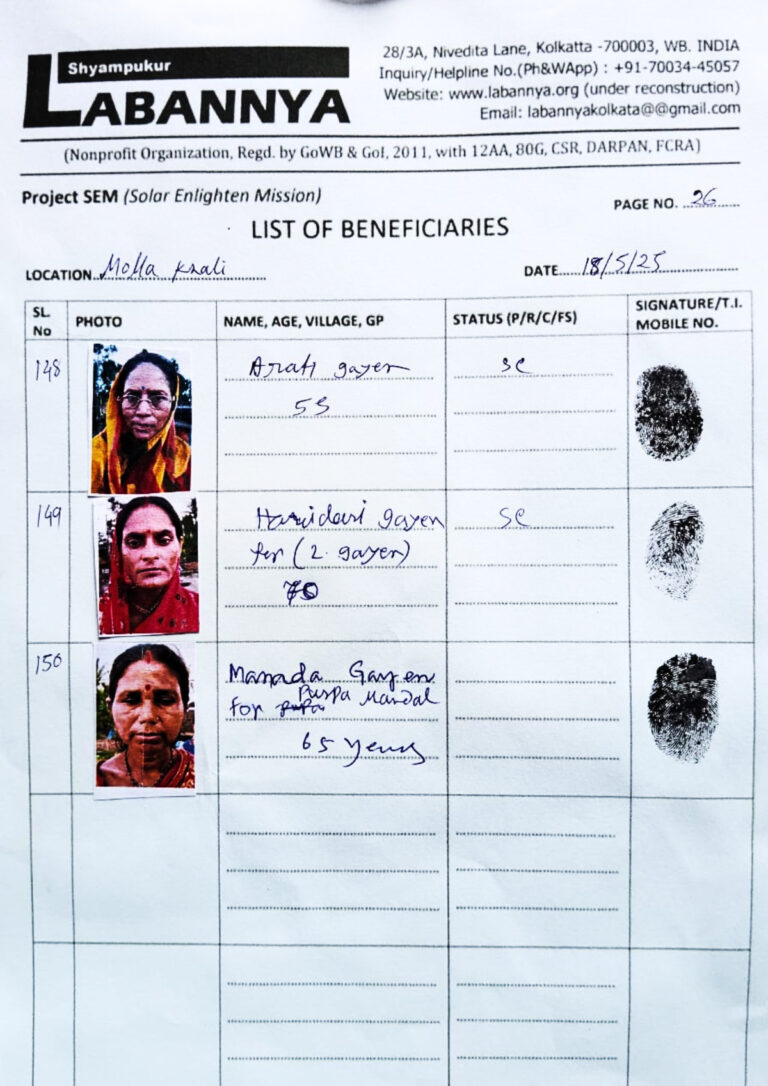 Shyampukur
LABANNYA
28/3A, Nivedita Lane, Kolkatta -700003, WB. INDIA
Inquiry/Helpline No.(Ph&WApp) : +91-70034-45057
Website: www.labannya.org (under reconstruction)
Email: labannyakolkata@@gmail.com
(Nonprofit Organization, Regd. by GoWB & GoI, 2011, with 12AA, 80G, CSR, DARPAN, FCRA)
Project SEM (Solar Enlighten Mission)
PAGE NO. 26
LIST OF BENEFICIARIES
LOCATION Molla Khali
DATE 18/5/25
SL. No PHOTO NAME, AGE, VILLAGE, GP STATUS (P/R/C/FS) SIGNATURE/T.I. MOBILE NO.
148 Arati gayen SC
149 gayen SC
(2. gayen)
150 Manada Gayen
for Puspa Mandal
65 years